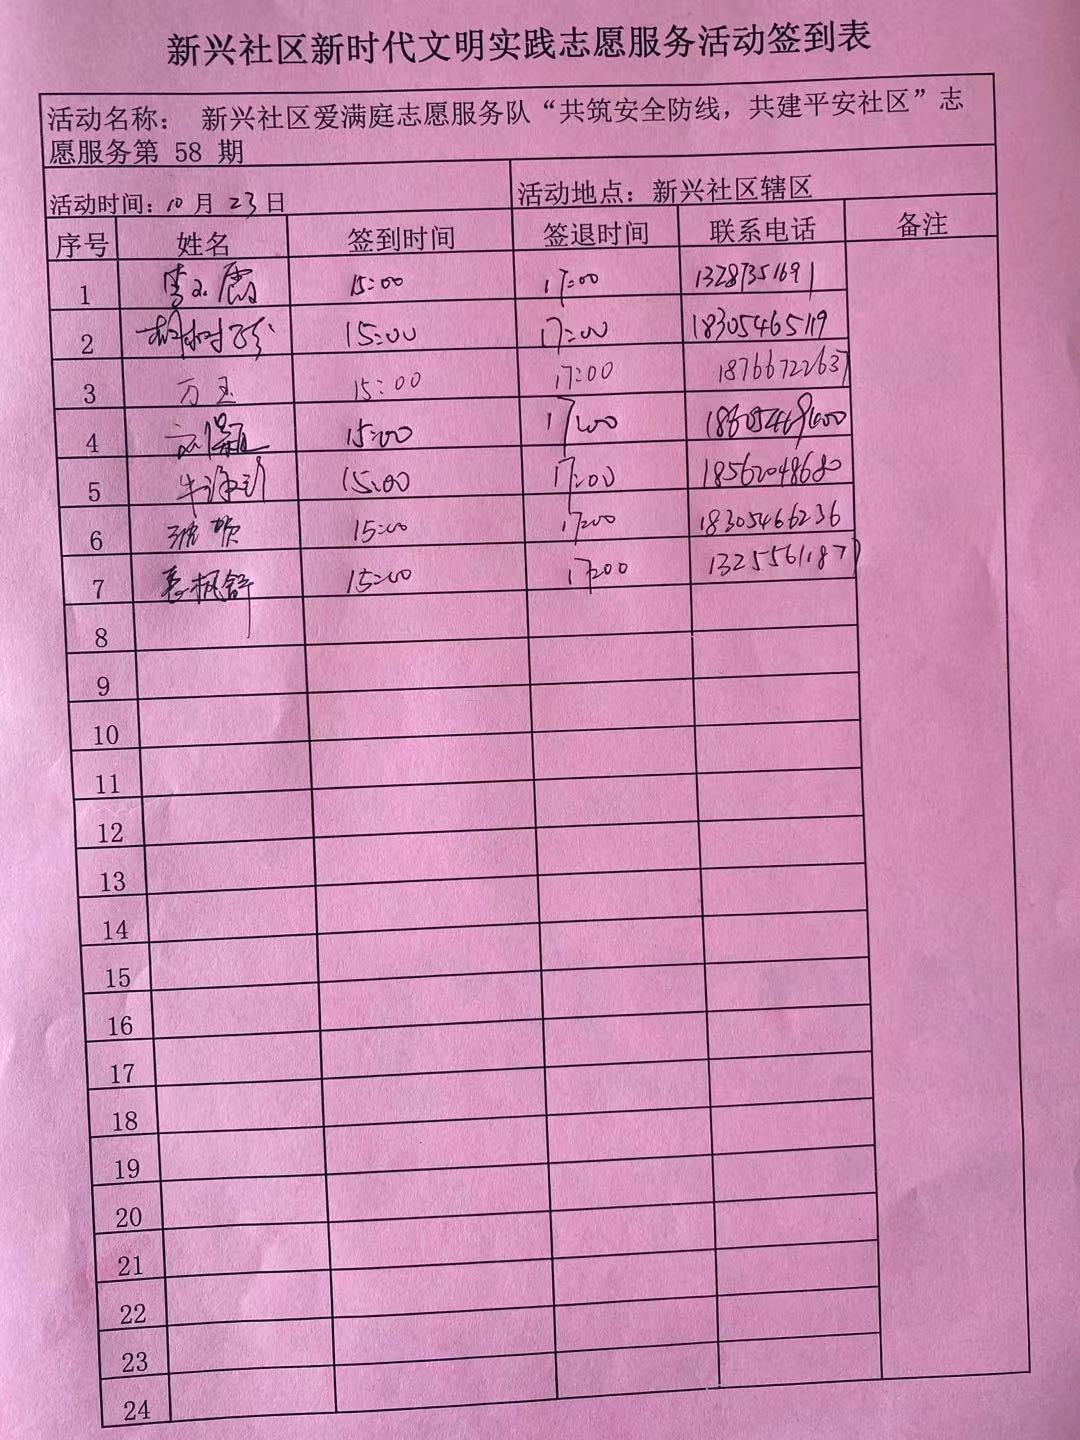 新兴社区新时代文明实践志愿服务活动签到表
活动名称： 新兴社区爱满庭志愿服务队“共筑安全防线，共建平安社区”志
愿服务第 58 期
活动时间：10 月 23 日 活动地点：新兴社区辖区
序号 姓名 签到时间 签退时间 联系电话 备注
1 15:00 17:00 13287351691
2 15:00 17:00 18305465119
3 万玉 15:00 17:00 18766722637
4 15:00 17:00
5 15:00 17:00 18562048680
6 15:00 17:00 18305466236
7 枫舒 15:00 17:00 13255611877
8
9
10
11
12
13
14
15
16
17
18
19
20
21
22
23
24